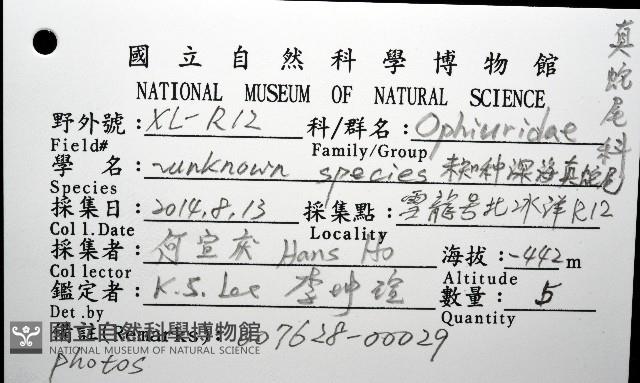 國立自然科學博物館
NATIONAL MUSEUM OF NATURAL SCIENCE
真蛇尾科
野外號: XL-R12 科/群名: Ophiuridae
Field# Family/Group
學 名: ~unknown species 未知种深海真蛇尾
Species
採集日: 2014.8.13 採集點: 雪龍号北冰洋R12
Coll.Date Locality
採集者: 何宣庆 Hans Ho 海拔: -442 m
Collector Altitude
鑑定者: K.S. Lee 李坤瑄 數量: 5
Det.by Quantity
備註(Remarks): 007628-00029
國立自然科學博物館
NATIONAL MUSEUM OF NATURAL SCIENCE
photos